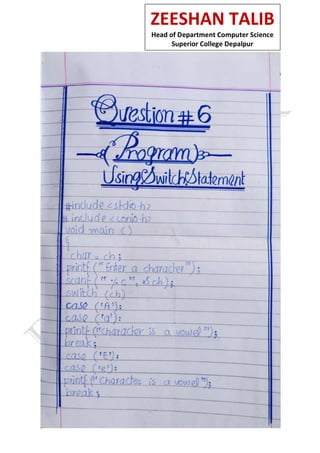 ZEESHAN TALIB
Head of Department Computer Science
Superior College Depalpur
Question #6
(Program)
Using Switch Statement
#include <stdio.h>
#include <conio.h>
void main ()
{
char ch;
printf ("Enter a character");
scanf ("%c", &ch);
switch (ch)
case ('A'):
case ('a'):
printf ("character is a vowel");
break;
case ('E'):
case ('e'):
printf ("Character is a vowel");
break;